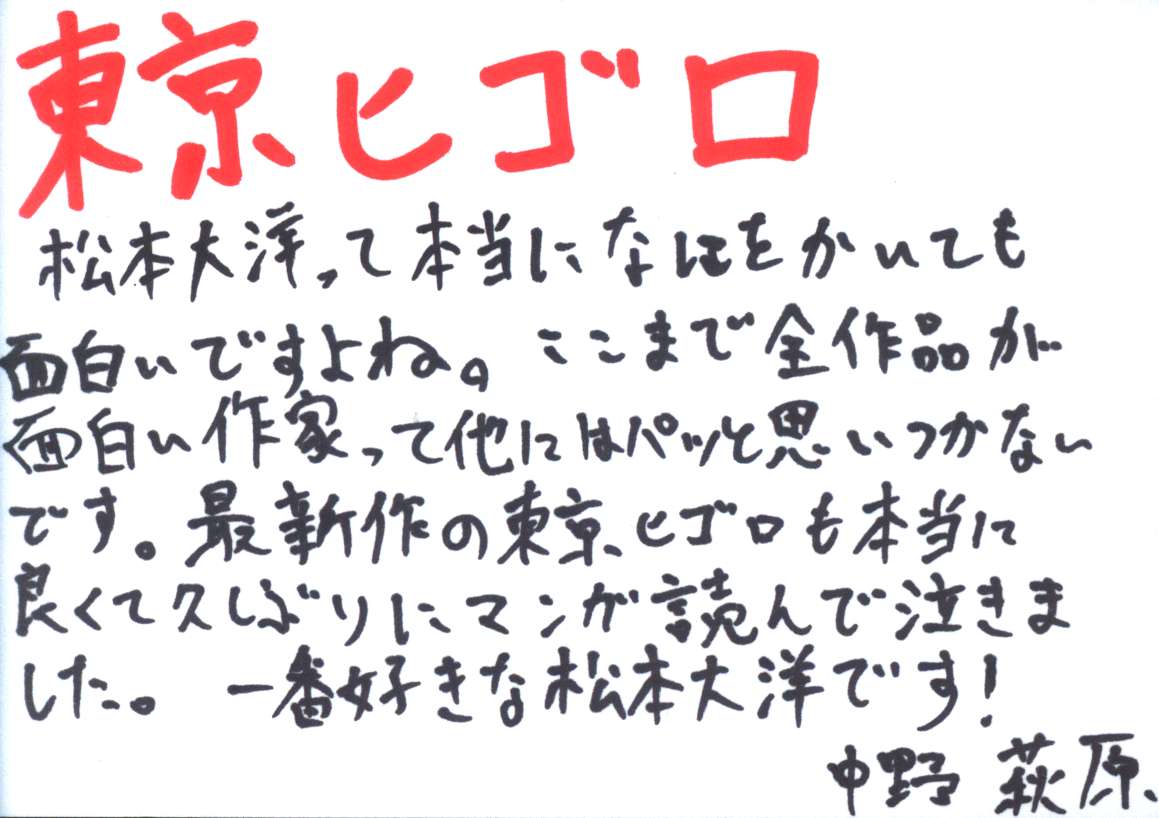 東京ヒゴロ
松本大洋って本当になにをかいても
面白いですよね。ここまで全作品が
面白い作家って他にはパッと思いつかない
です。最新作の東京ヒゴロも本当に
良くて久しぶりにマンガ読んで泣きま
した。一番好きな松本大洋です!
中野 萩原